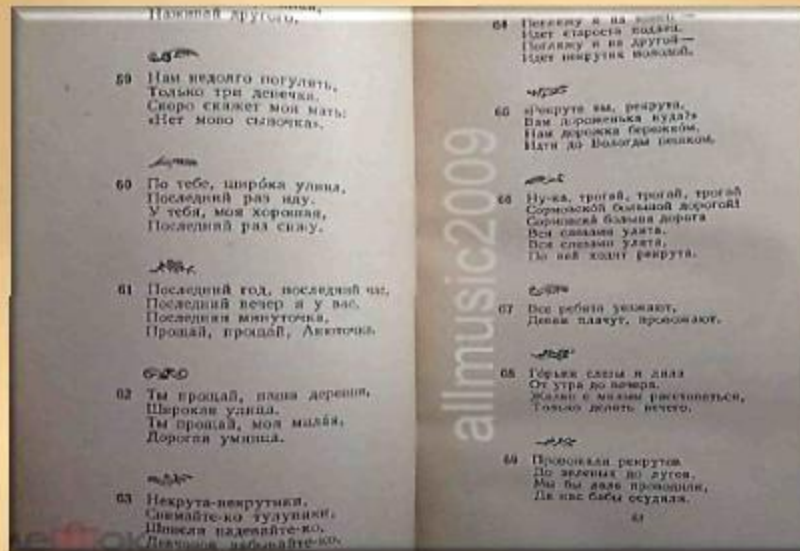 Наживай другого,
59 Нам недолго погулять,
Только три денечка.
Скоро скажет моя мать:
«Нет мово сыночка».
60 По тебе, широ́ка улица,
Последний раз иду.
У тебя, моя хорошая,
Последний раз сижу.
61 Последний год, последний час,
Последний вечер я у вас.
Последняя минуточка,
Прощай, прощай, Анюточка.
62 Ты прощай, наша деревня,
Широкая улица.
Ты прощай, моя мила́я,
Дорогая умница.
63 Некрута-некрутики,
Снимайте-ко тулупики,
Шинели надевайте-ко,
Девчонок забывайте-ко.
64 Погляжу я на конец —
Идет староста
Погляжу я на другой —
Идет некрутик молодой.
65 «Рекрута вы, рекрута,
Вам дороженька куда?»
Нам дорожка бережком,
Идти до Вологды пешком.
66 Ну-ка, трогай, трогай, трогай
Сормовско́й большой дорогой!
Сормовска́ больша дорога
Вся слезами улита.
Вся слезами улита,
По ней ходят рекрута.
67 Все ребята уезжают,
Девки плачут, провожают.
68 Горьки слезы я лила
От утра до вечера.
Жалко с милым расставаться,
Только делать нечего.
69 Провожали рекрутов
До зеленых до лугов.
Мы бы дале проводили,
Да нас бабы осудили.
allmusic2009